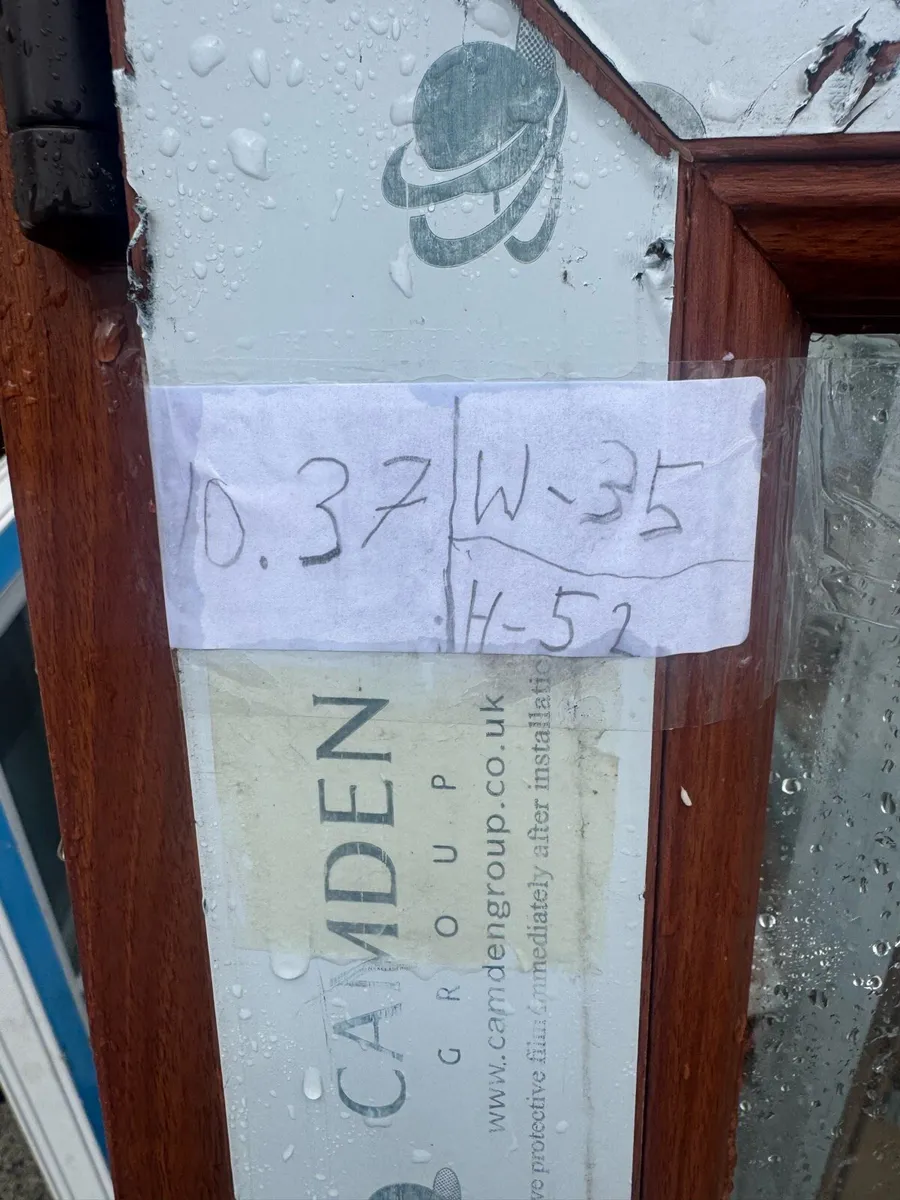 10.37
W-35
H-52
CAMDEN
GROUP
www.camdengroup.co.uk
protective film immediately after